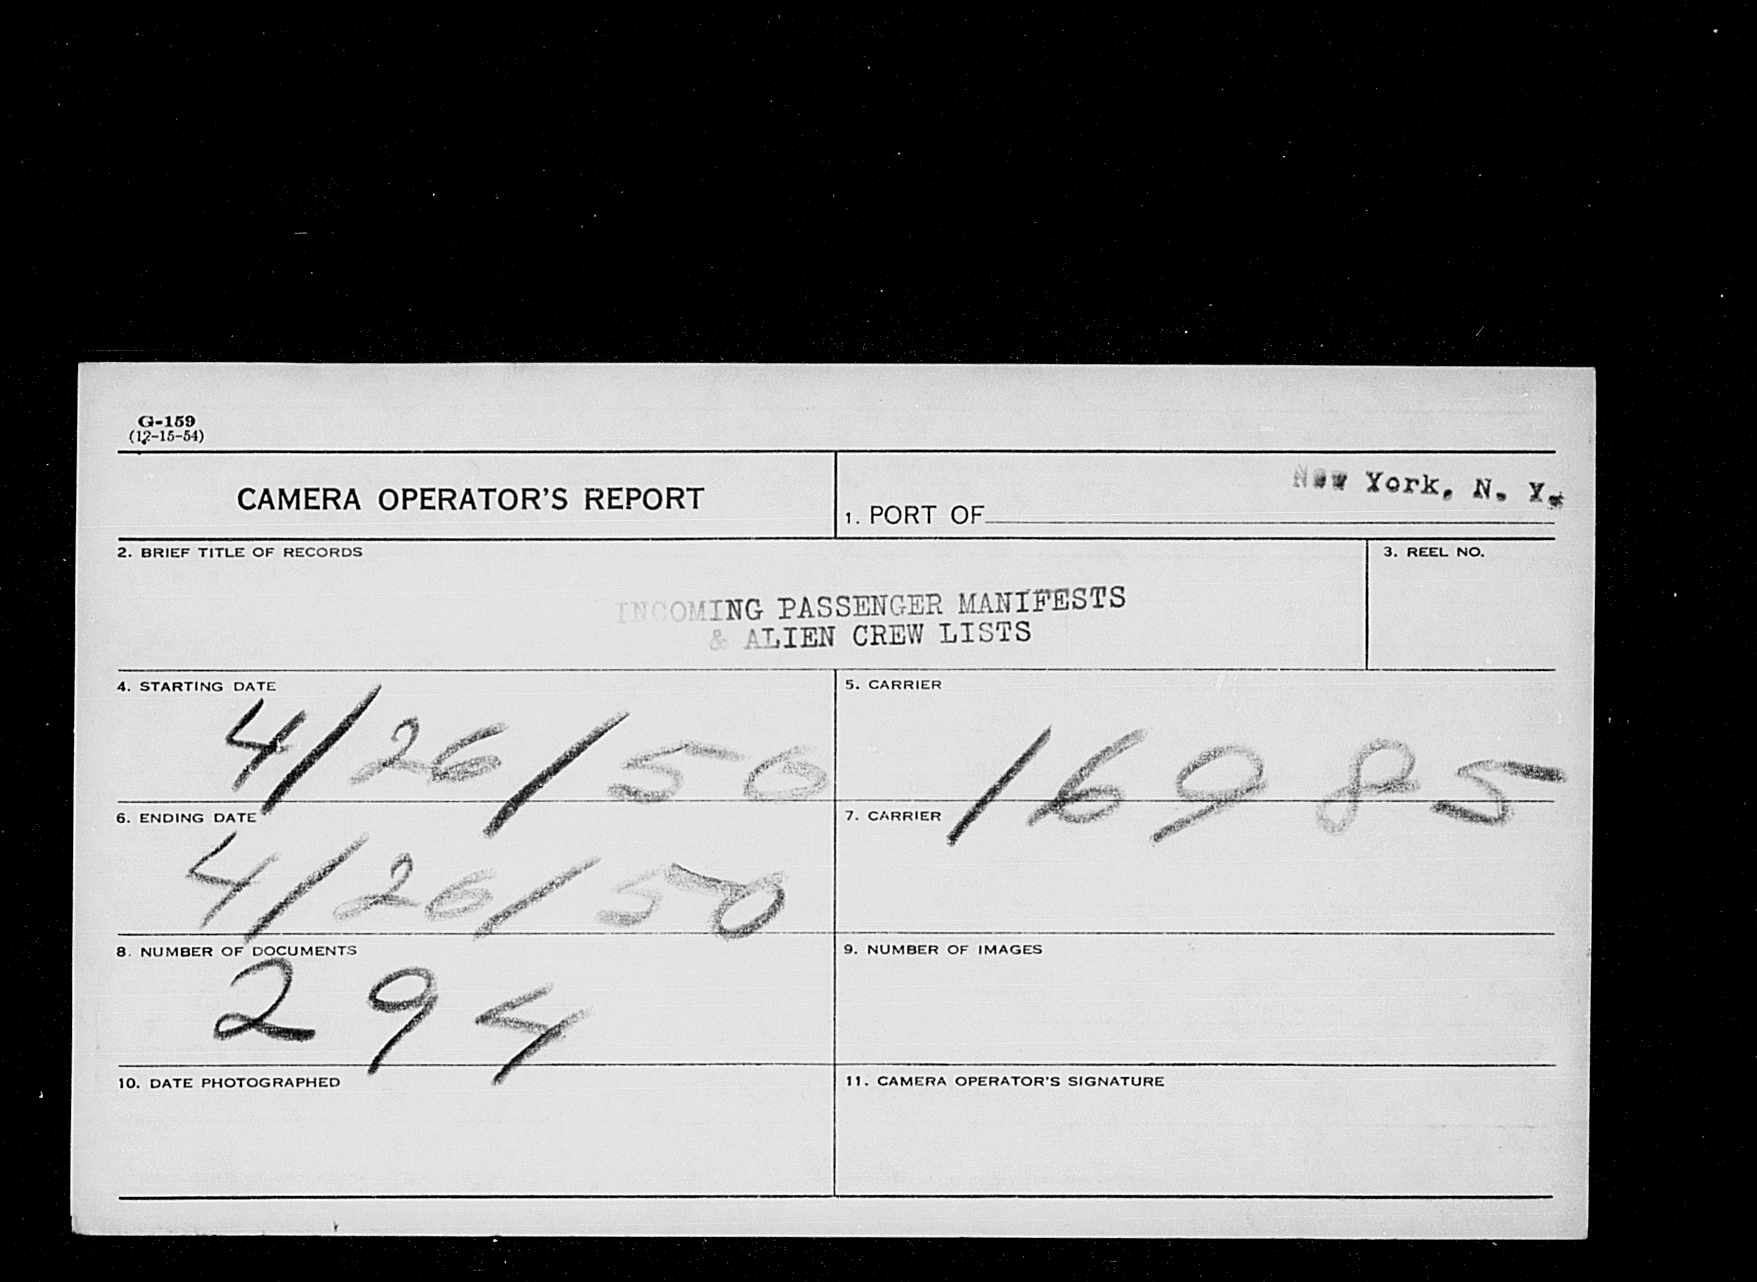 G-159
(12-15-54)
CAMERA OPERATOR'S REPORT
1. PORT OF New York, N. Y.
2. BRIEF TITLE OF RECORDS
INCOMING PASSENGER MANIFESTS
& ALIEN CREW LISTS
3. REEL NO.
4. STARTING DATE
4/26/50
5. CARRIER
16985
6. ENDING DATE
4/26/50
7. CARRIER
8. NUMBER OF DOCUMENTS
294
9. NUMBER OF IMAGES
10. DATE PHOTOGRAPHED
11. CAMERA OPERATOR'S SIGNATURE